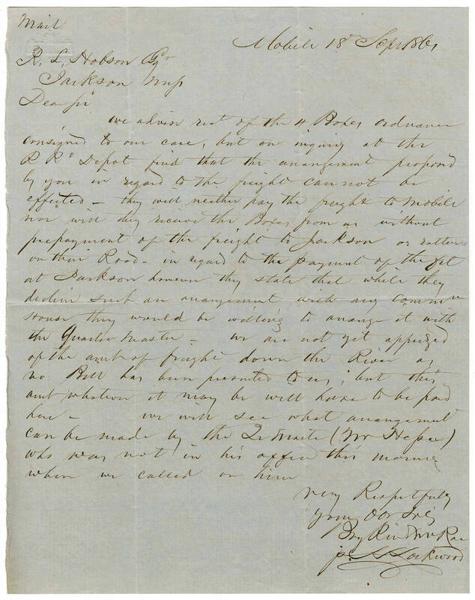 Mail
Mobile 18 Sept 1861
R. L. Hobson
Jackson Miss
Dear Sir
we advise rect of the 4 Boxes ordnance
consigned to our care, but on inquiry at the
R Rd Depot find that the arrangement proposed
by you in regard to the freight cannot be
effected – they will neither pay the freight to Mobile
nor will they receive the Boxes from us without
prepayment of the freight to Jackson or
on their Road – in regard to the payment of the fgt
at Jackson however they state that while they
decline such an arrangement with any Commn
House they would be willing to arrange it with
the Quarter Master – we are not yet apprized
of the amt of freight down the River as
no Bill has been presented to us, but the
amt whatever it may be will have to be paid
here – we will see what arrangement
can be made by the
who was not in his office this morning
when we called on him
very Respectfully
your
Lockwood